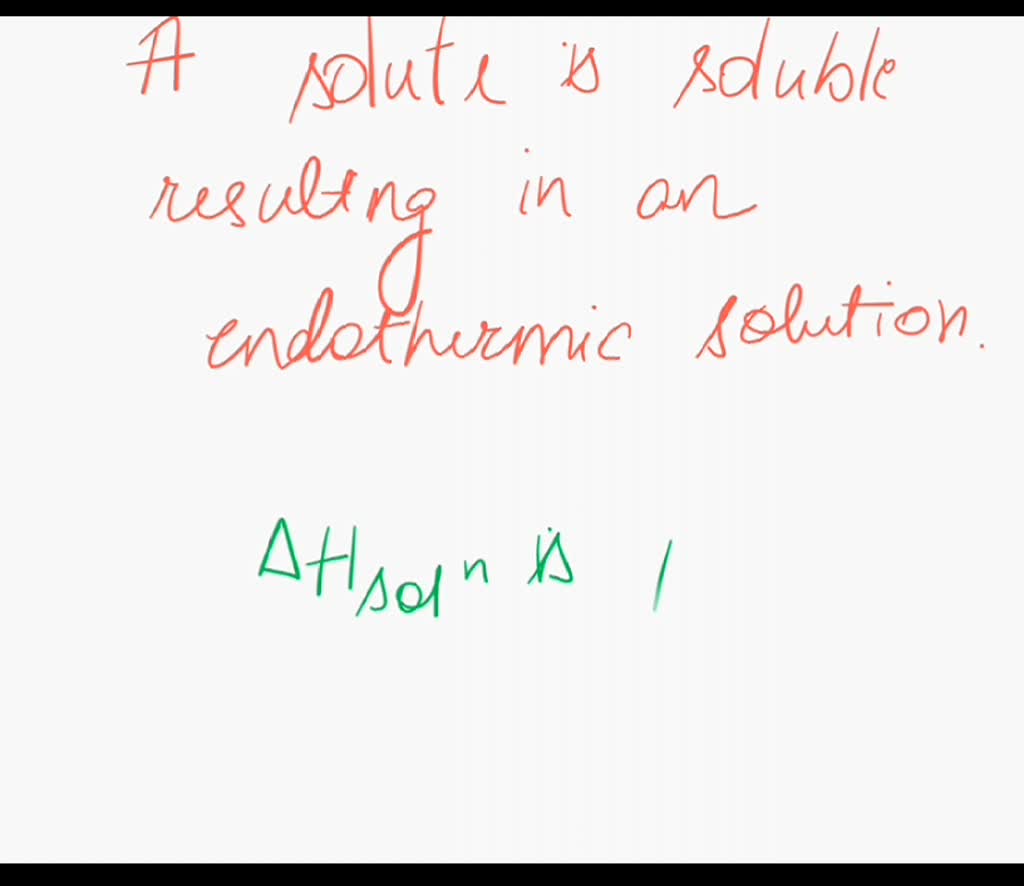 A solute is soluble
resulting in an
endothermic solution.
ΔHsolⁿ is